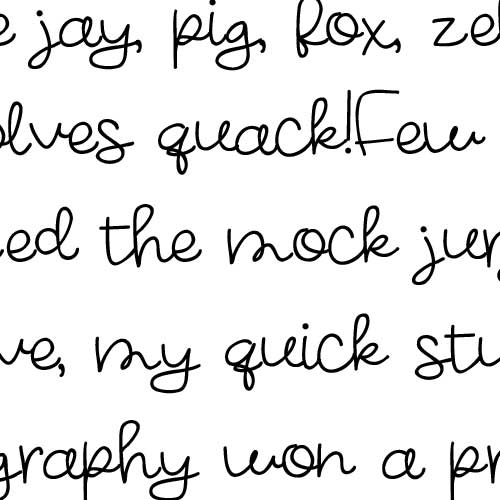 e jay, pig, fox, ze
olves quack!Few
ed the mock jur
ve, my quick stu
graphy won a pr